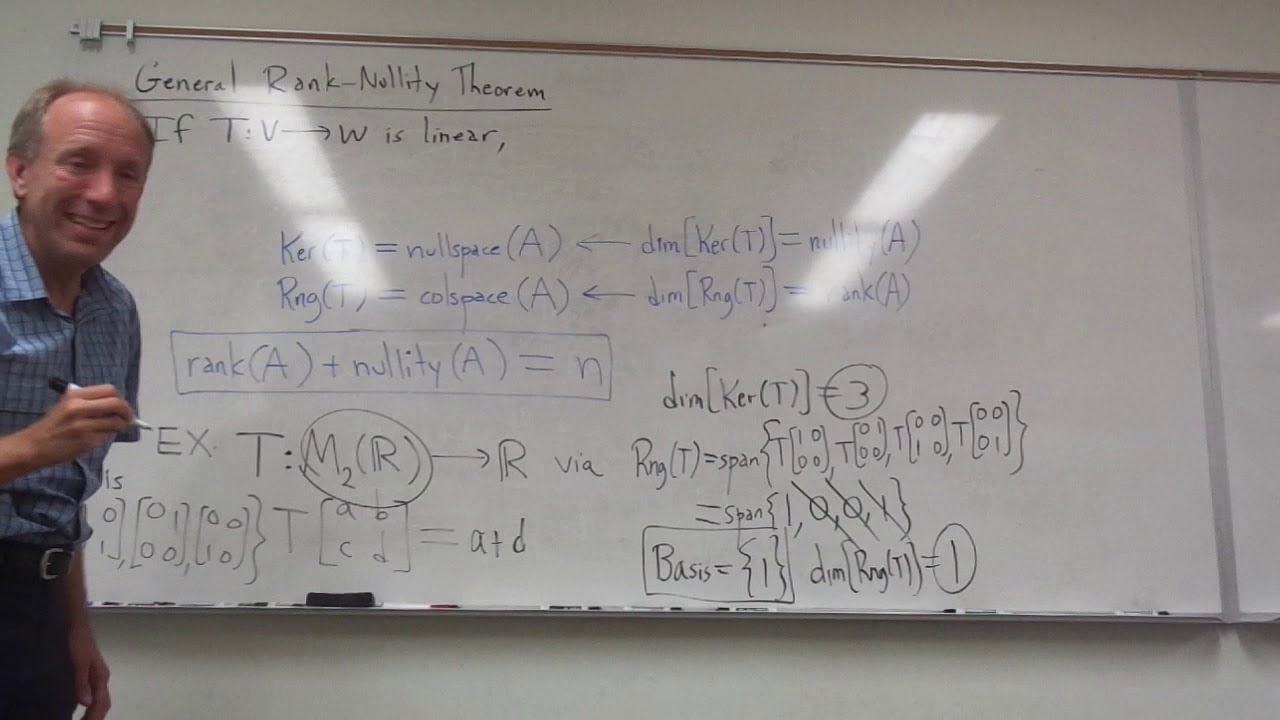 General Rank-Nullity Theorem
If T: V → W is linear,
Ker(T) = nullspace(A) ← dim[Ker(T)] = nullity(A)
Rng(T) = colspace(A) ← dim[Rng(T)] = rank(A)
rank(A) + nullity(A) = n
dim[Ker(T)] = 3
EX. T: M₂(ℝ) → ℝ via
Rng(T) = span{T[1 0; 0 0], T[0 1; 0 0], T[0 0; 1 0], T[0 0; 0 1]}
is
0; 1], [0 1; 0 0], [0 0; 1 0]} T[a b; c d] = a+d
= span{1, 0, 0, 1}
Basis = {1} dim[Rng(T)] = 1